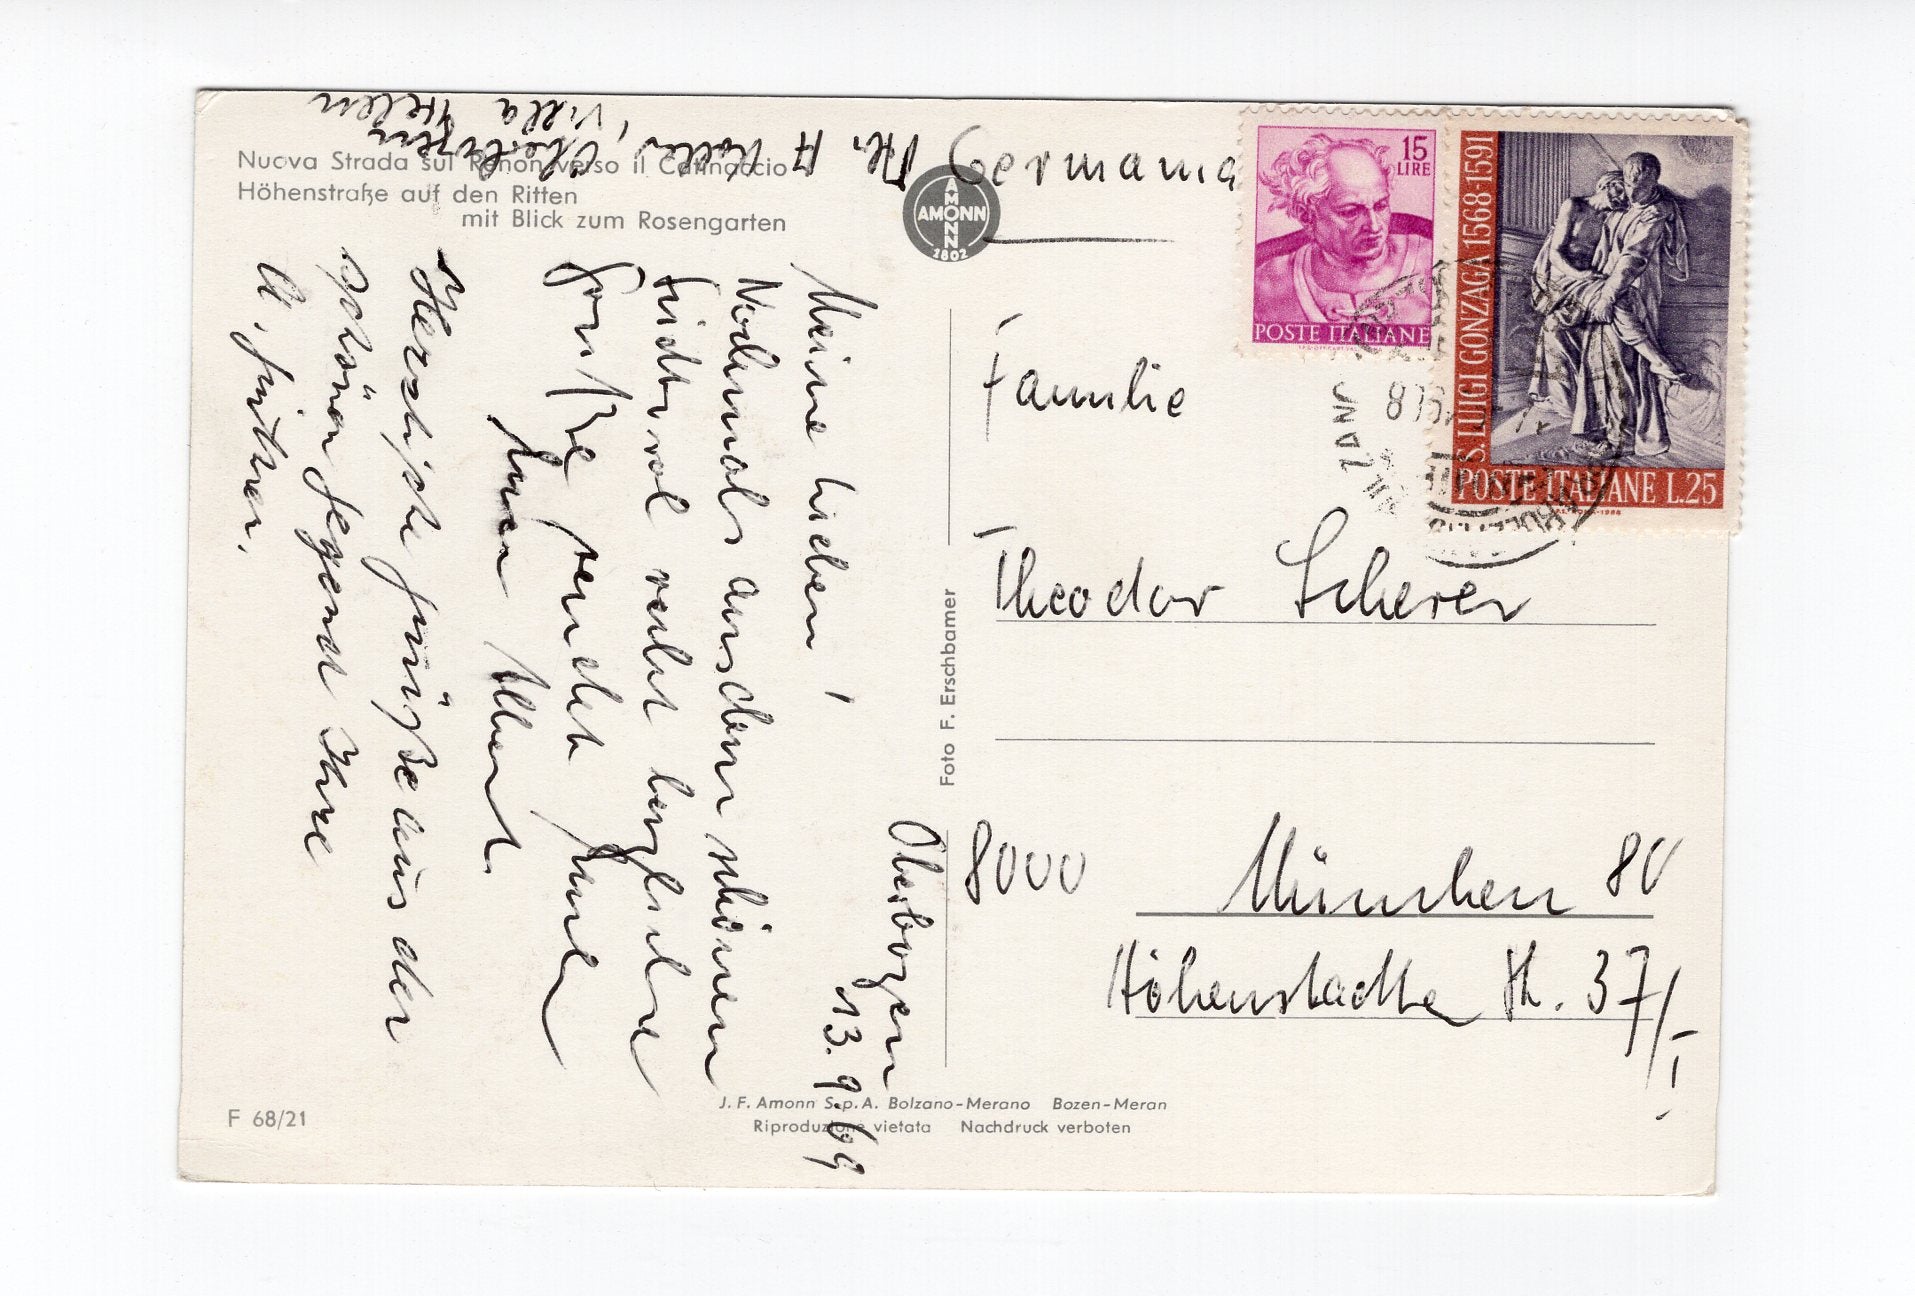 Nuova Strada sul Renon verso il Catinaccio
Höhenstraße auf den Ritten
mit Blick zum Rosengarten
AMONN
AMONN
1802
Germania
15
LIRE
POSTE ITALIANE
S. LUIGI GONZAGA 1568-1591
POSTE ITALIANE L.25
Familie
Theodor Scherer
8000 München 80
Höhenstadter Str. 37/I
Foto F. Erschbamer
Oberbozen
13.9.69
Meine Lieben!
Nochmals aus dem schönen
Südtirol recht herzliche
Grüße sendet Euch
Herzliche Grüße aus der
schönen Gegend Ihre
Oberbozen
Villa Helen
F 68/21
J. F. Amonn S.p.A. Bolzano-Merano Bozen-Meran
Riproduzione vietata Nachdruck verboten